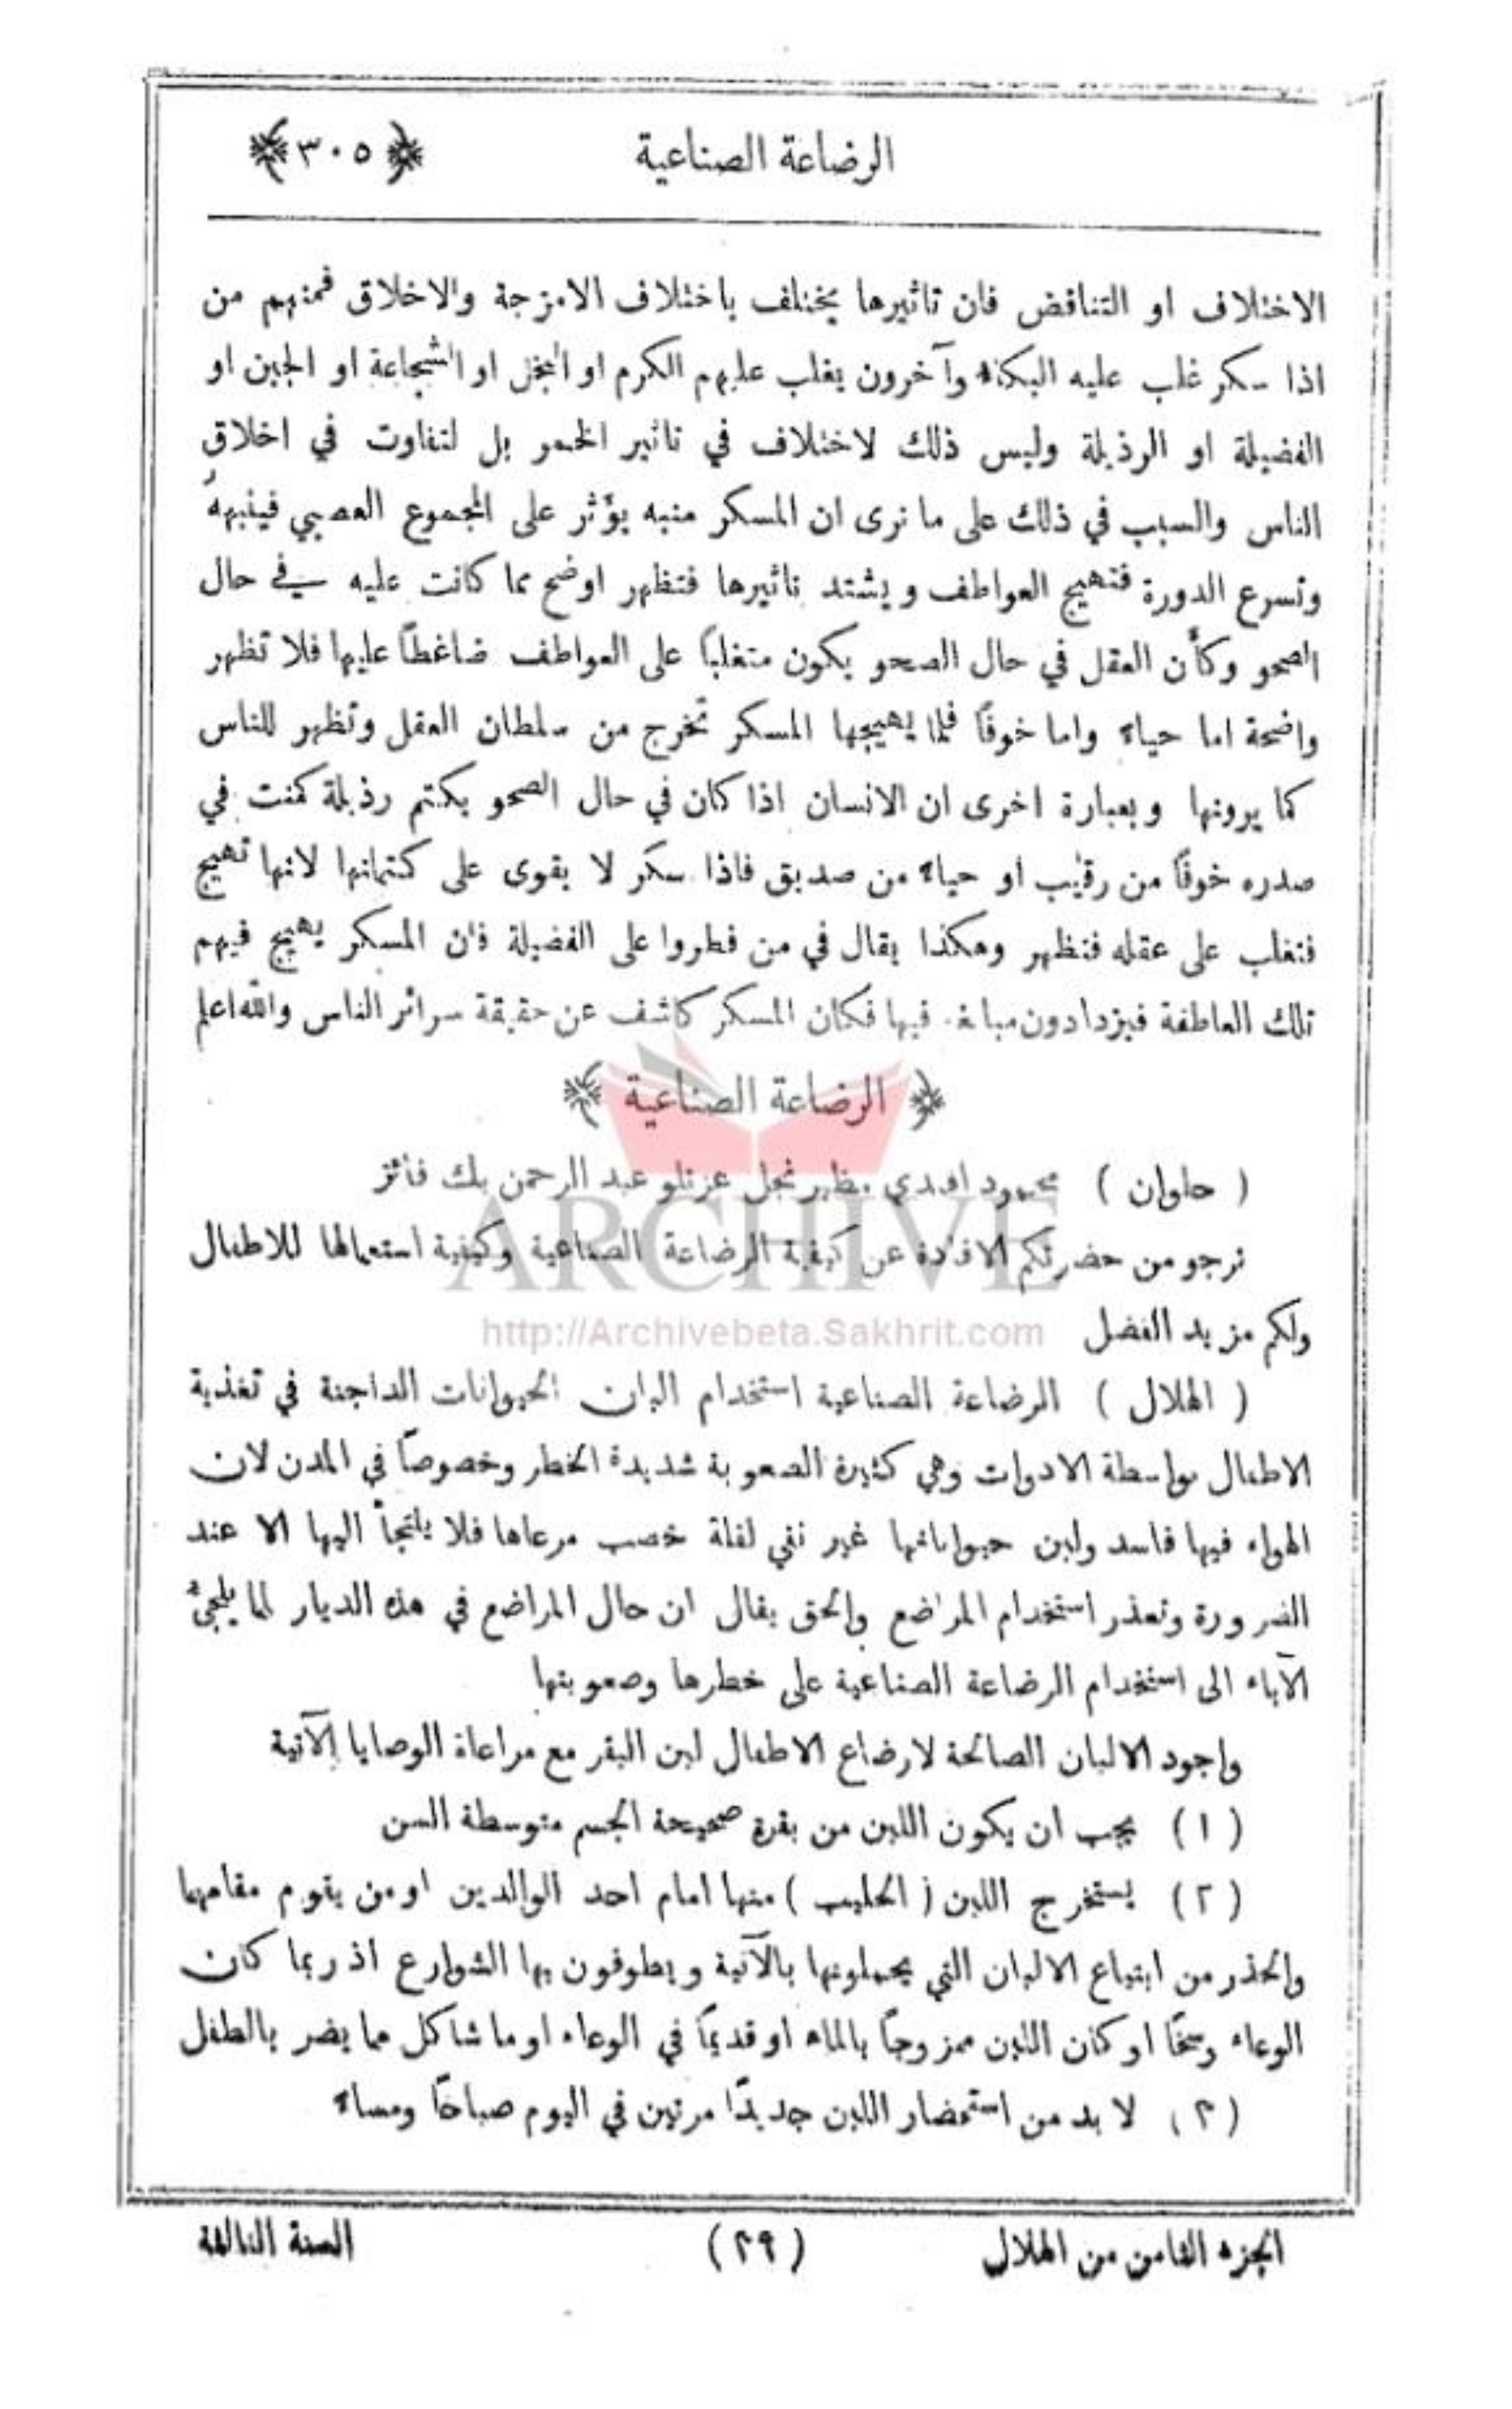 الرضاعة الصناعية ﴿٣٠٥﴾
الاختلاف او التناقض فان تاثيرها يختلف باختلاف الامزجة والاخلاق فمنهم من
اذا سكر غلب عليه البكاء وآخرون يغلب عليهم الكرم او البخل او الشجاعة او الجبن او
الفضيلة او الرذيلة وليس ذلك لاختلاف في تاثير الخمر بل لتفاوت في اخلاق
الناس والسبب في ذلك على ما نرى ان المسكر منبه يؤثر على المجموع العصبي فينبههُ
وتسرع الدورة فتهيج العواطف ويشتد تاثيرها فتظهر اوضح مما كانت عليه في حال
الصحو وكأن العقل في حال الصحو يكون متغلباً على العواطف ضاغطاً عليها فلا تظهر
واضحة اما حياء واما خوفاً فلما يهيجها المسكر تخرج من سلطان العقل وتظهر للناس
كما يرونها وبعبارة اخرى ان الانسان اذا كان في حال الصحو يكتم رذيلة كمنت في
صدره خوفاً من رقيب او حياء من صديق فاذا سكر لا يقوى على كتمانها لانها تهيج
فتغلب على عقله فتظهر وهكذا يقال في من فطروا على الفضيلة فان المسكر يهيج فيهم
تلك العاطفة فيزدادون مبالغة فيها فكان المسكر كاشف عن حقيقة سرائر الناس والله اعلم
﴿ الرضاعة الصناعية ﴾
( حلوان ) محمود افندي مظهر نجل عزتلو عبد الرحمن بك فائز
نرجو من حضرتكم الافادة عن كيفية الرضاعة الصناعية وكيفية استعمالها للاطفال
ولكم مزيد الفضل
( الهلال ) الرضاعة الصناعية استخدام البان الحيوانات الداجنة في تغذية
الاطفال بواسطة الادوات وهي كثيرة الصعوبة شديدة الخطر وخصوصاً في المدن لان
الهواء فيها فاسد ولبن حيواناتها غير نقي لقلة خصب مرعاها فلا يلتجأ اليها الا عند
الضرورة وتعذر استخدام المراضع والحق يقال ان حال المراضع في هذه الديار لما يلجئ
الآباء الى استخدام الرضاعة الصناعية على خطرها وصعوبتها
واجود الالبان الصالحة لارضاع الاطفال لبن البقر مع مراعاة الوصايا الآتية
( ١ ) يجب ان يكون اللبن من بقرة صحيحة الجسم متوسطة السن
( ٢ ) يستخرج اللبن ( الحليب ) منها امام احد الوالدين او من يقوم مقامهما
والحذر من ابتياع الالبان التي يحملونها بالآنية ويطوفون بها الشوارع اذ ربما كان
الوعاء وسخاً او كان اللبن ممزوجاً بالماء او قديماً في الوعاء او ما شاكل مما يضر بالطفل
( ٣ ) لا بد من استحضار اللبن جديداً مرتين في اليوم صباحاً ومساء
الجزء الثامن من الهلال (٣٩) السنة الثالثة
ARCHIVE
http://Archivebeta.Sakhrit.com